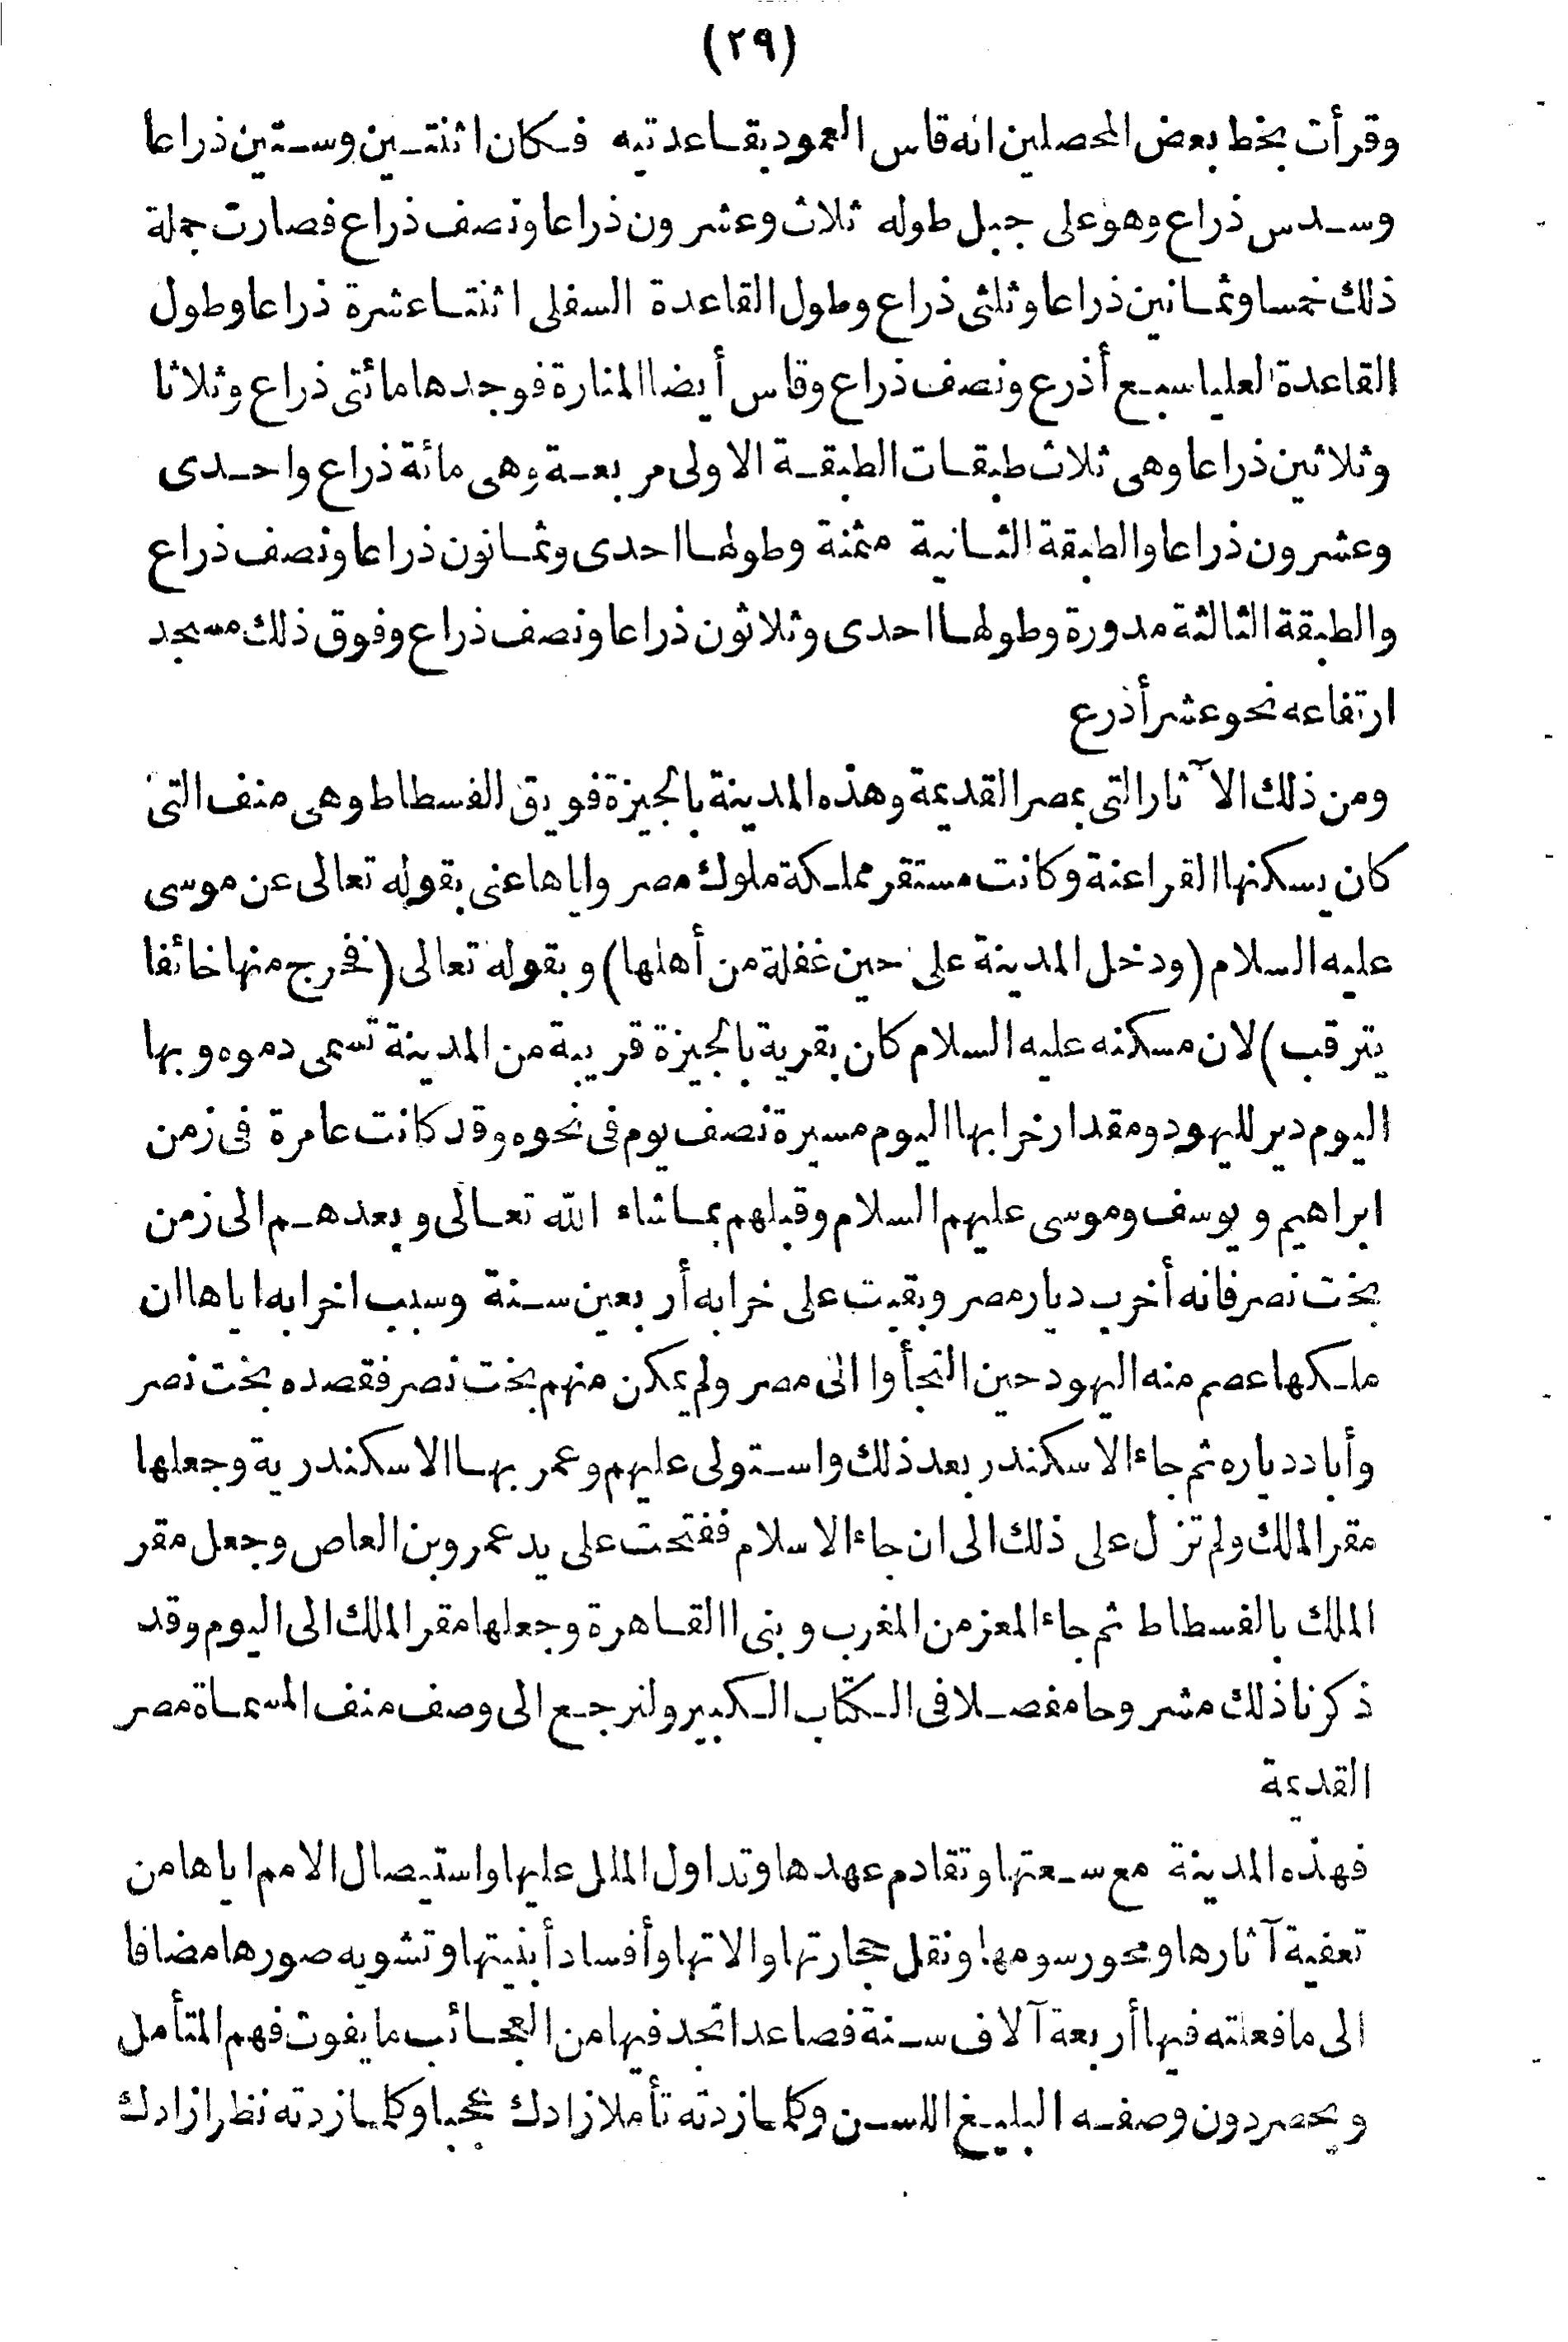 (٢٩)
وقرأت بخط بعض المحصلين انه قاس العمود بقاعدتيه فكان اثنتين وستين ذراعا
وسدس ذراع وهو على جبل طوله ثلاث وعشرون ذراعا ونصف ذراع فصارت جملة
ذلك خمسا وثمانين ذراعا وثلثى ذراع وطول القاعدة السفلى اثنتا عشرة ذراعا وطول
القاعدة العليا سبع أذرع ونصف ذراع وقاس أيضا المنارة فوجدها مائتى ذراع وثلاثا
وثلاثين ذراعا وهى ثلاث طبقات الطبقة الاولى مربعة وهى مائة ذراع واحدى
وعشرون ذراعا والطبقة الثانية مثمنة وطولها احدى وثمانون ذراعا ونصف ذراع
والطبقة الثالثة مدورة وطولها احدى وثلاثون ذراعا ونصف ذراع وفوق ذلك مسجد
ارتفاعه نحو عشر أذرع
ومن ذلك الآثار التى بمصر القديمة وهذه المدينة بالجيزة فويق الفسطاط وهى منف التى
كان يسكنها الفراعنة وكانت مستقر مملكة ملوك مصر واياها عنى بقوله تعالى عن موسى
عليه السلام (ودخل المدينة على حين غفلة من أهلها) وبقوله تعالى (فخرج منها خائفا
يترقب) لان مسكنه عليه السلام كان بقرية بالجيزة قريبة من المدينة تسمى دموه وبها
اليوم دير لليهود ومقدار خرابها اليوم مسيرة نصف يوم فى نحوه وقد كانت عامرة فى زمن
ابراهيم ويوسف وموسى عليهم السلام وقبلهم بما شاء الله تعالى وبعدهم الى زمن
بخت نصر فانه أخرب ديار مصر وبقيت على خرابه أربعين سنة وسبب اخرابه اياها ان
ملكها عصم منه اليهود حين التجأوا الى مصر ولم يمكن منهم بخت نصر فقصده بخت نصر
وأباد دياره ثم جاء الاسكندر بعد ذلك واستولى عليهم وعمر بها الاسكندرية وجعلها
مقر الملك ولم تزل على ذلك الى ان جاء الاسلام ففتحت على يد عمرو بن العاص وجعل مقر
الملك بالفسطاط ثم جاء المعز من المغرب وبنى القاهرة وجعلها مقر الملك الى اليوم وقد
ذكرنا ذلك مشروحا مفصلا فى الكتاب الكبير ولنرجع الى وصف منف المسماة مصر
القديمة
فهذه المدينة مع سعتها وتقادم عهدها وتداول الملل عليها واستيصال الامم اياها من
تعفية آثارها ومحو رسومها ونقل حجارتها والاتها وأفساد أبنيتها وتشويه صورها مضافا
الى ما فعلته فيها أربعة آلاف سنة فصاعدا تجد فيها من العجائب ما يفوت فهم المتأمل
ويحصر دون وصفه البليغ اللسن وكلما زدته تأملا زادك عجبا وكلما زدته نظرا زادك